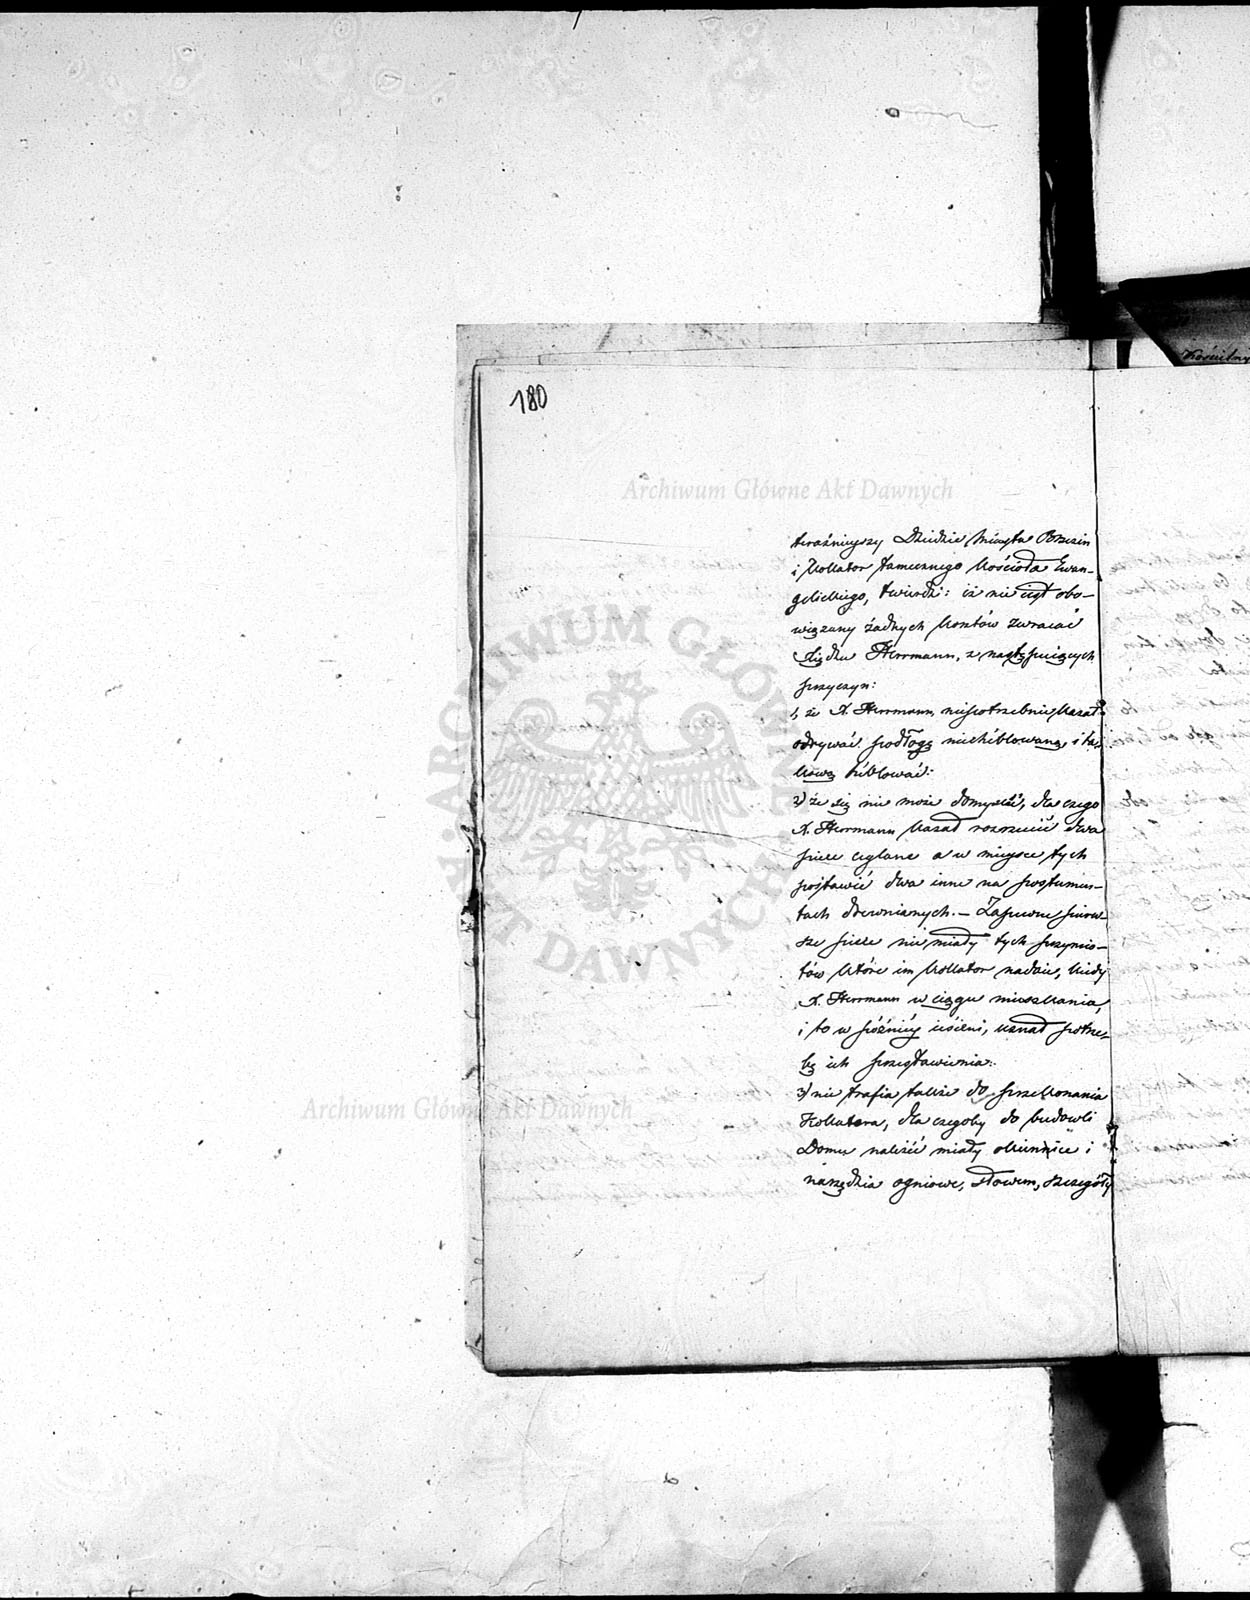 180
teraźnieyszy Dziedzic Miasta Brzezin
i Kollator tamecznego Kościoła Ewan-
gelickiego, twierdzi: iż nie iest obo-
wiązany żadnych kosztów zwracać
Xiędzu Herrmann, z następuiących
przyczyn:
1, że X. Herrmann, niepotrzebnie kazał
odrywać podłogę niehéblowaną, i ta-
kową héblować:
2) że się nie może domyślić, dla czego
X. Herrmann kazał rozrzucić dwa
piece ceglane a w mieysce tych
postawić dwa inne na postumen-
tach drewnianych. — Zapewne pierw-
sze piece nie miały tych przymio-
tów które im Kollator nadaie, kiedy
X. Herrmann w ciągu mieszkania,
i to w późniéy iesieni, uznał potrze-
bę ich przestawienia:
3) nie trafia także do przekonania
Kollatora, dla czegoby do budowli
Domu należéć miały okiennice i
narzędzia ogniowe, słowem, szczegóły
Kościelny
Archiwum Główne Akt Dawnych
Archiwum Główne Akt Dawnych
ARCHIWUM GŁÓWNE AKT DAWNYCH